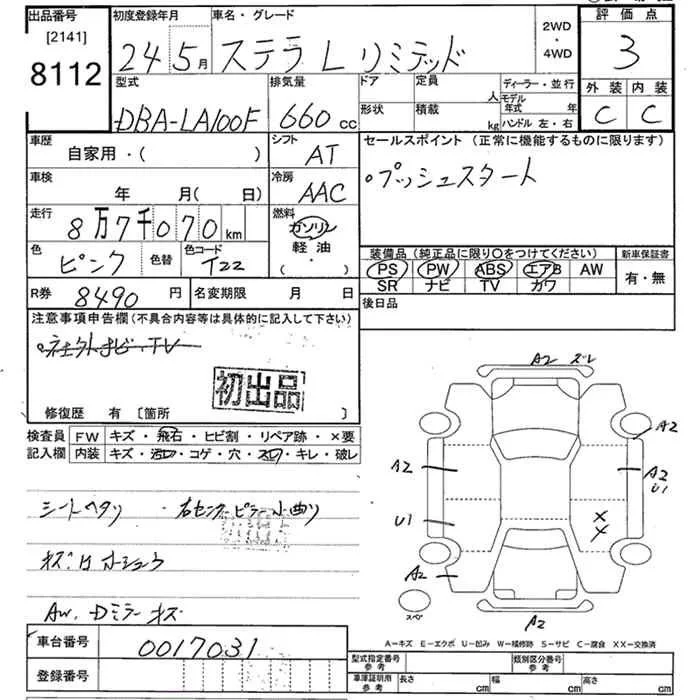 出品番号 初度登録年月 車名・グレード 2WD・4WD 評価点
[2141]
8112 24 5月 ステラ Lリミテッド 3
型式 排気量 ドア 定員 人 ディーラー・並行 外装 内装
DBA-LA100F 660cc 形状 積載 kg モデル年式 年 ハンドル 左・右 C C
車歴 自家用・( ) シフト AT セールスポイント(正常に機能するものに限ります)
車検 年 月(日) 冷房 AAC ・プッシュスタート
走行 8万7千070km 燃料 ガソリン
軽油
( ・ )
色 ピンク 色替 色コード T22 装備品(純正品に限り〇をつけてください) 新車保証書
PS PW ABS エアB AW 有・無
SR ナビ TV カワ
R券 8490円 名変期限 月 日 後日品
注意事項申告欄(不具合内容等は具体的に記入して下さい)
初出品
修復歴 有 [箇所 ]
検査員 FW キズ・飛石・ヒビ割・リペア跡・×要
記入欄 内装 キズ・汚レ・コゲ・穴・スレ・キレ・破レ
シートヘタリ ・右センターピラー小曲り
キズ凹小ショウ
AW.Dミラーキズ
A2 ズレ
A2
A2 A2
U1
U1 ××
A2
スペア
A2
A-キズ E-エクボ U-凹み W-補修跡 S-サビ C-腐食 XX-交換済
車台番号 0017031
登録番号
型式指定番号 参考 類別区分番号 参考
車庫証明用 参考 長さ cm 幅 cm 高さ cm